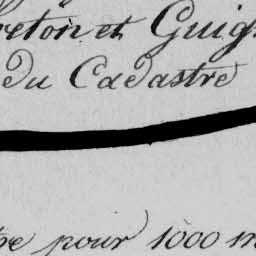 reton et Guig
du Cadastre
tre pour 1000 m